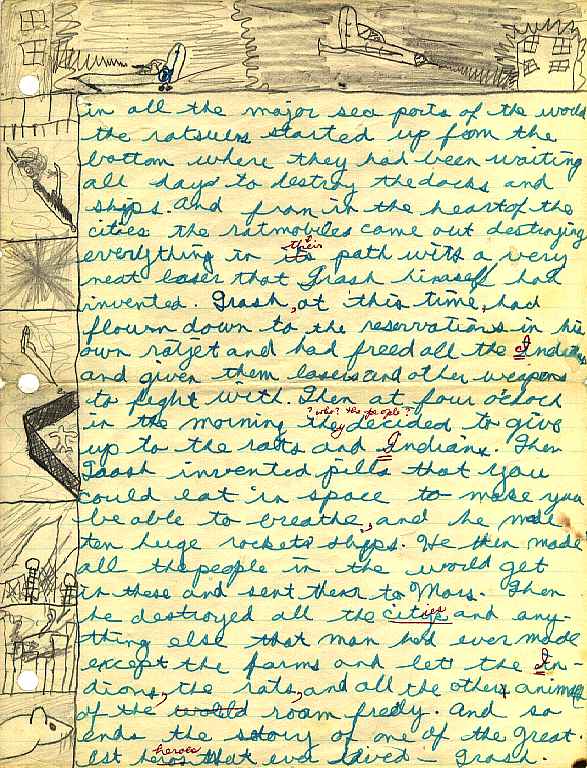 in all the major sea ports of the world
the ratsubs started up from the
bottom where they had been waiting
all day to destroy the docks and
ships. And from in the heart of the
cities the ratmobiles came out destroying
their
everlything in its path with a very
neat laser that Trash himself had
invented. Trash, at this time, had
flown down to the reservations in his
own ratjet and had freed all the Indians
and given them lasers and other weapons
to fight with. Then at four o'clock
? who? the people?
in the morning they decided to give
up to the rats and Indians. Then
Trash invented pills that you
could eat in space to make you
be able to breathe, and he made
ten huge rockets ships. He then made
all the people in the world get
in these and sent them to Mars. Then
he destroyed all the cities and any-
thing else that man had ever made
except the farms and let the In-
dians, the rats, and all the others animals
of the world roam freely. And so
ends the story of one of the great-
heroes
est heros that ever lived – Trash.